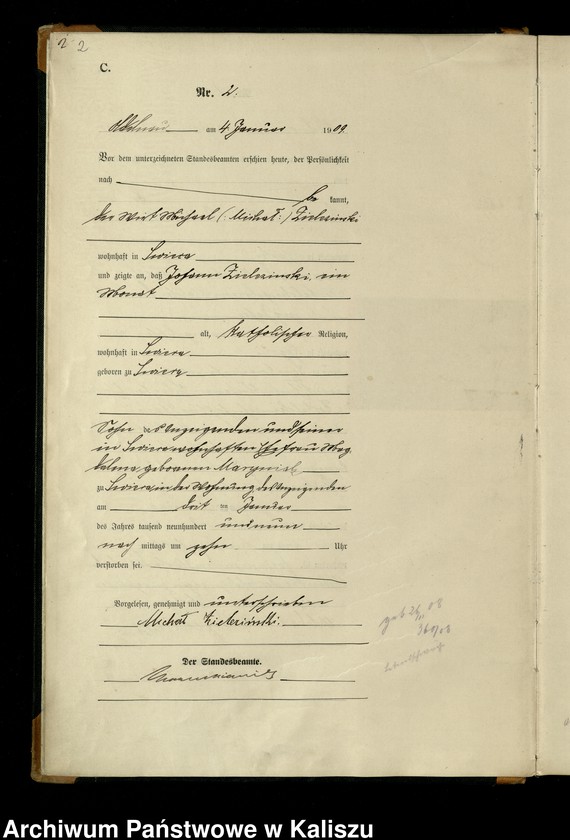 2 2
C.
Nr. 2.
am 4 Januar 1909
Vor dem unterzeichneten Standesbeamten erschien heute, der Persönlichkeit
nach be kannt,
der Wirt Michael (: Michał :) Zielezinski
wohnhaft in
und zeigte an, daß Johann Zielezinski, ein
Monat
alt, katholischer Religion,
wohnhaft in
geboren zu
Sohn des Anzeigenden und seiner
in wohnhaften Ehefrau Mag
dalena geborenen
zu in der Wohnung des Anzeigenden
am drit en Januar
des Jahres tausend neunhundert und neun
nach mittags um zehn Uhr
verstorben sei.
Vorgelesen, genehmigt und unterschrieben
Michał Zieleziński.
Der Standesbeamte.
Archiwum Państwowe w Kaliszu